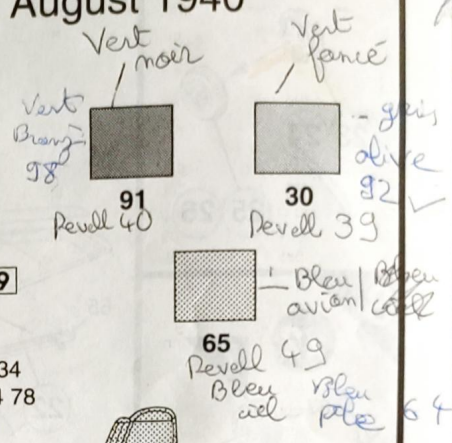 August 1940
Vert
noir
Vert
foncé
Vert
Bronze
98
- gris
olive
92 ✓
91
Revell 40
30
Revell 39
9
Bleu
avion/
Bleu
ciel
65
Revell 49
Bleu
ciel
Bleu
pâle 64
34
78